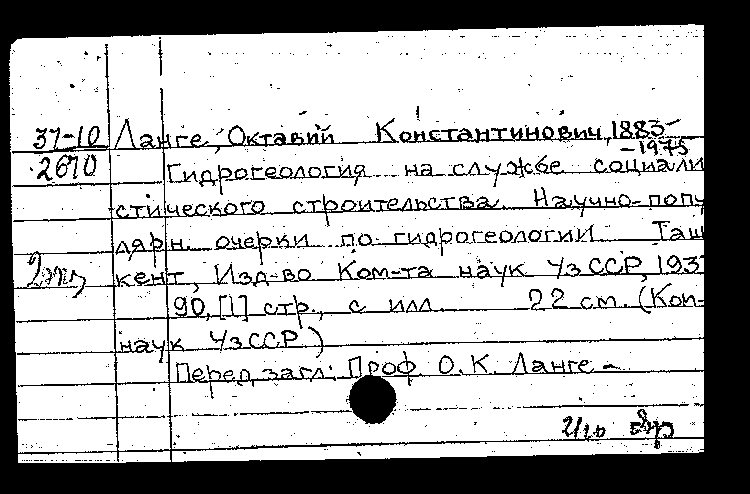 37-10 Ланге, Октавий Константинович, 1883-
2670 -1975
Гидрогеология на службе социали
стического строительства. Научно-попу
лярн. очерки по гидрогеологии. Таш
2 экз кент, Изд-во Ком-та наук УзССР, 193
90, [1] стр., с илл. 22 см. (Ком-
наук УзССР)
Перед загл: Проф. О. К. Ланге -